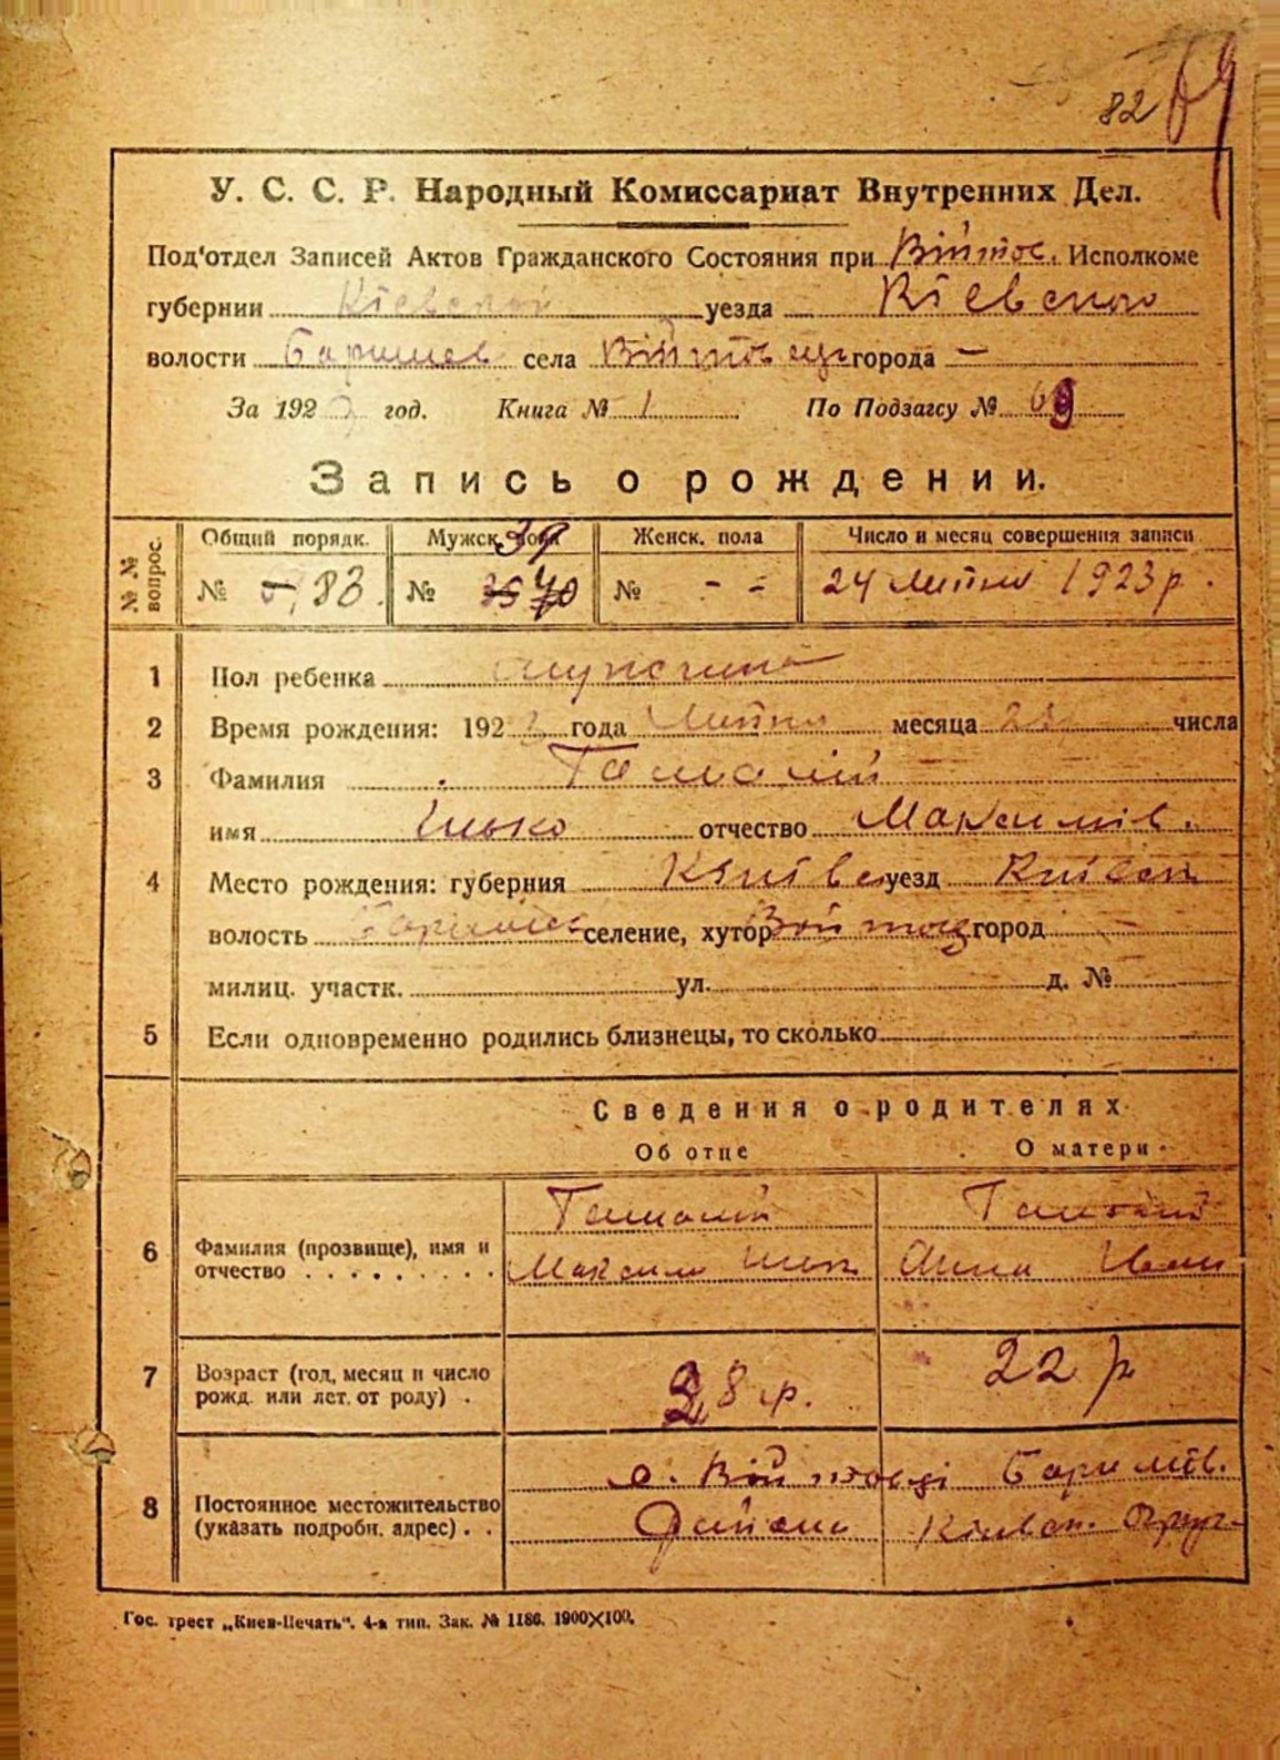 82 69
У. С. С. Р. Народный Комиссариат Внутренних Дел.
Под'отдел Записей Актов Гражданского Состояния при Війтов. Исполкоме
губернии Кіевской уезда Кіевського
волости Баришев села Війтовці города —
За 192 год. Книга № 1 По Подзагсу № 69
Запись о рождении.
№ № вопрос.
Общий порядк. Мужск. пола Женск. пола Число и месяц совершения записи
39
№ 83. № 40 № - - 24 липня 1923 р.
1 Пол ребенка мужчина
2 Время рождения: 192 года Липня месяца числа
3 Фамилия Гамалій
имя Ілько отчество Максимів.
4 Место рождения: губерния Київс уезд Київськ
волость Баришев селение, хутор Войтовц город —
милиц. участк. ул. д. №
5 Если одновременно родились близнецы, то сколько
Сведения о родителях
Об отце О матери
6 Фамилия (прозвище), имя и отчество
Гамалій Гамалій
Максим Ільк Анна Іван
7 Возраст (год, месяц и число рожд. или лет. от роду)
28 р. 22 р
8 Постоянное местожительство (указать подробн. адрес)
с. Війтовці Баришів.
Району Київськ. Округ.
Гос. трест „Киев-Печать". 4-я тип. Зак. № 1186. 1900×100.